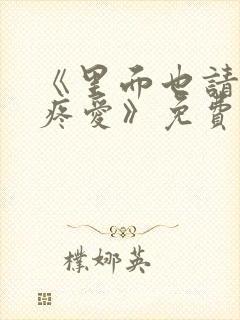 《里而也請
疼愛》免費
樸娜英